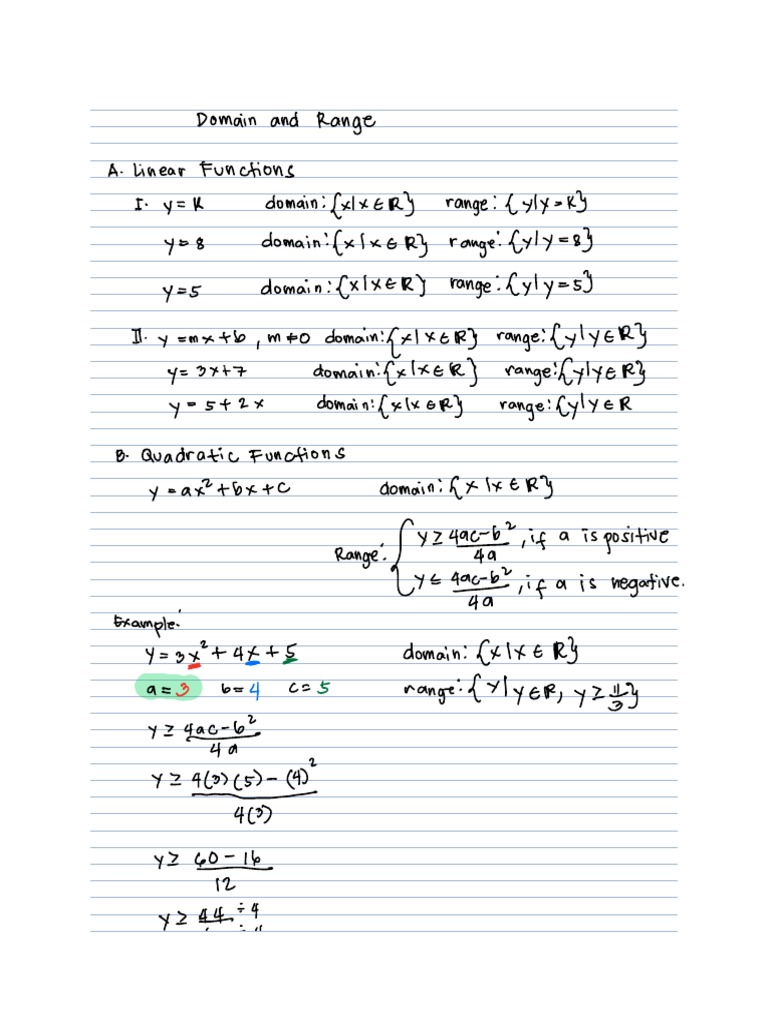 Domain and Range
A. Linear Functions
I. y = K domain: {x|x ∈ R} range: {y|y = K}
y = 8 domain: {x|x ∈ R} range: {y|y = 8}
y = 5 domain: {x|x ∈ R} range: {y|y = 5}
II. y = mx + b, m ≠ 0 domain: {x|x ∈ R} range: {y|y ∈ R}
y = 3x + 7 domain: {x|x ∈ R} range: {y|y ∈ R}
y = 5 + 2x domain: {x|x ∈ R} range: {y|y ∈ R
B. Quadratic Functions
y = ax² + bx + c domain: {x|x ∈ R}
Range: { y ≥ 4ac - b² / 4a, if a is positive
y ≤ 4ac - b² / 4a, if a is negative.
Example:
y = 3x² + 4x + 5 domain: {x|x ∈ R}
a = 3 b = 4 c = 5 range: {y|y ∈ R, y ≥ 11/3}
y ≥ 4ac - b² / 4a
y ≥ 4(3)(5) - (4)² / 4(3)
y ≥ 60 - 16 / 12
y ≥ 44 ÷ 4